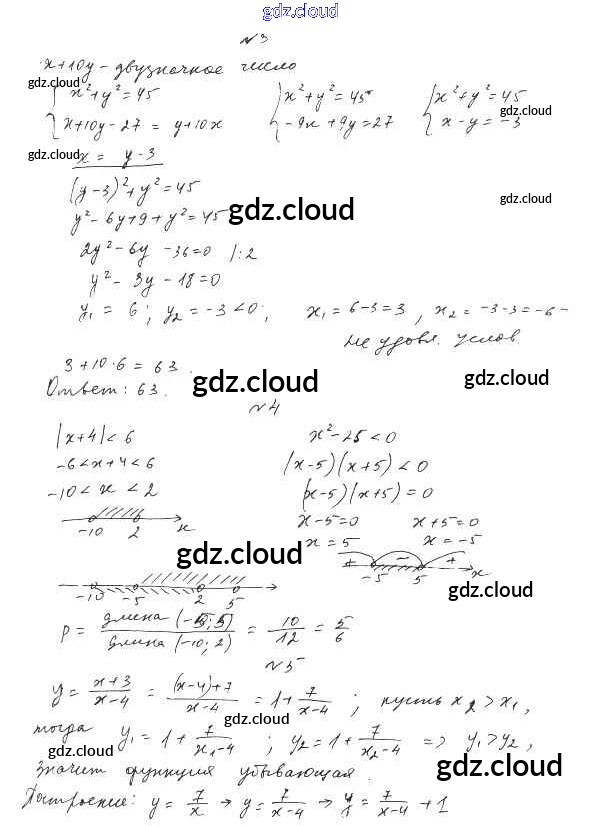 gdz.cloud
№3
x+10y - двузначное число
gdz.cloud
{x²+y²=45 {x²+y²=45 {x²+y²=45
gdz.cloud
x+10y-27 = y+10x -9x+9y=27 x-y=-3
gdz.cloud
x = y-3
(y-3)²+y²=45
gdz.cloud
y²-6y+9+y²=45
gdz.cloud
2y²-6y-36=0 /:2
y²-3y-18=0
y₁ = 6; y₂=-3<0; x₁=6-3=3, x₂=-3-3=-6-
не удовл. услов.
3+10·6=63.
gdz.cloud
gdz.cloud
Ответ: 63.
№4
|x+4|<6 x²-25<0
-6<x+4<6 (x-5)(x+5)<0
-10<x<2 (x-5)(x+5)=0
x-5=0 x+5=0
-10 2 x x=5 x=-5
gdz.cloud
+ - +
-5 5 x
-10 -5 2 5
gdz.cloud
P = длина (-5; 5) / длина (-10; 2) = 10/12 = 5/6
№5
y = (x+3)/(x-4) = ((x-4)+7)/(x-4) = 1+7/(x-4); пусть x₂>x₁,
gdz.cloud
тогда y₁ = 1+7/(x₁-4); y₂=1+7/(x₂-4) => y₁>y₂,
gdz.cloud
значит функция убывающая.
gdz.cloud
Построение: y = 7/x → y = 7/(x-4) → y = 7/(x-4) + 1